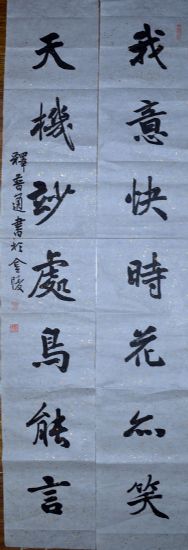 我意快時花亦笑
天機妙處鳥能言
釋普通書於金陵